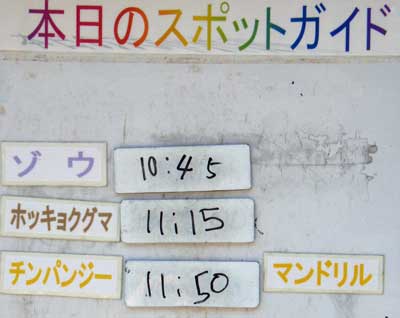 本日のスポットガイド
ゾウ 10:45
ホッキョクグマ 11:15
チンパンジー 11:50 マンドリル